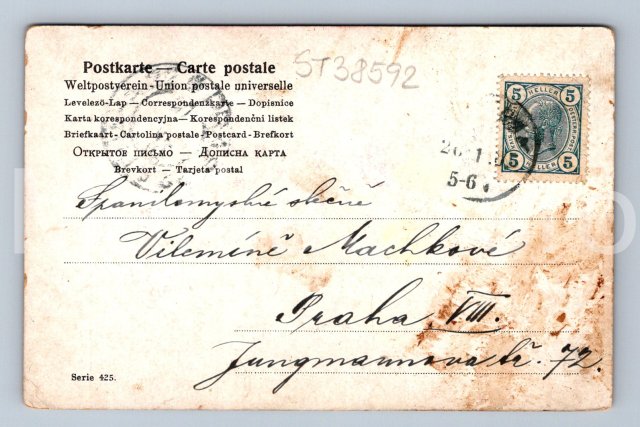 Postkarte — Carte postale
ST38592
Weltpostverein - Union postale universelle
Levelező-Lap — Correspondenzkarte — Dopisnice
Karta korespondencyjna — Korespondenčni listek
Briefkaart - Cartolina postale - Postcard - Brefkort
Открытое письмо — Дописна карта
Brevkort — Tarjeta postal
5 HELLER 5
26 1
5-6
5 HELLER 5
Spanilomyslné slečně
Vileméně Machkové
Praha VIII.
Jungmannova tř. 72.
Serie 425.